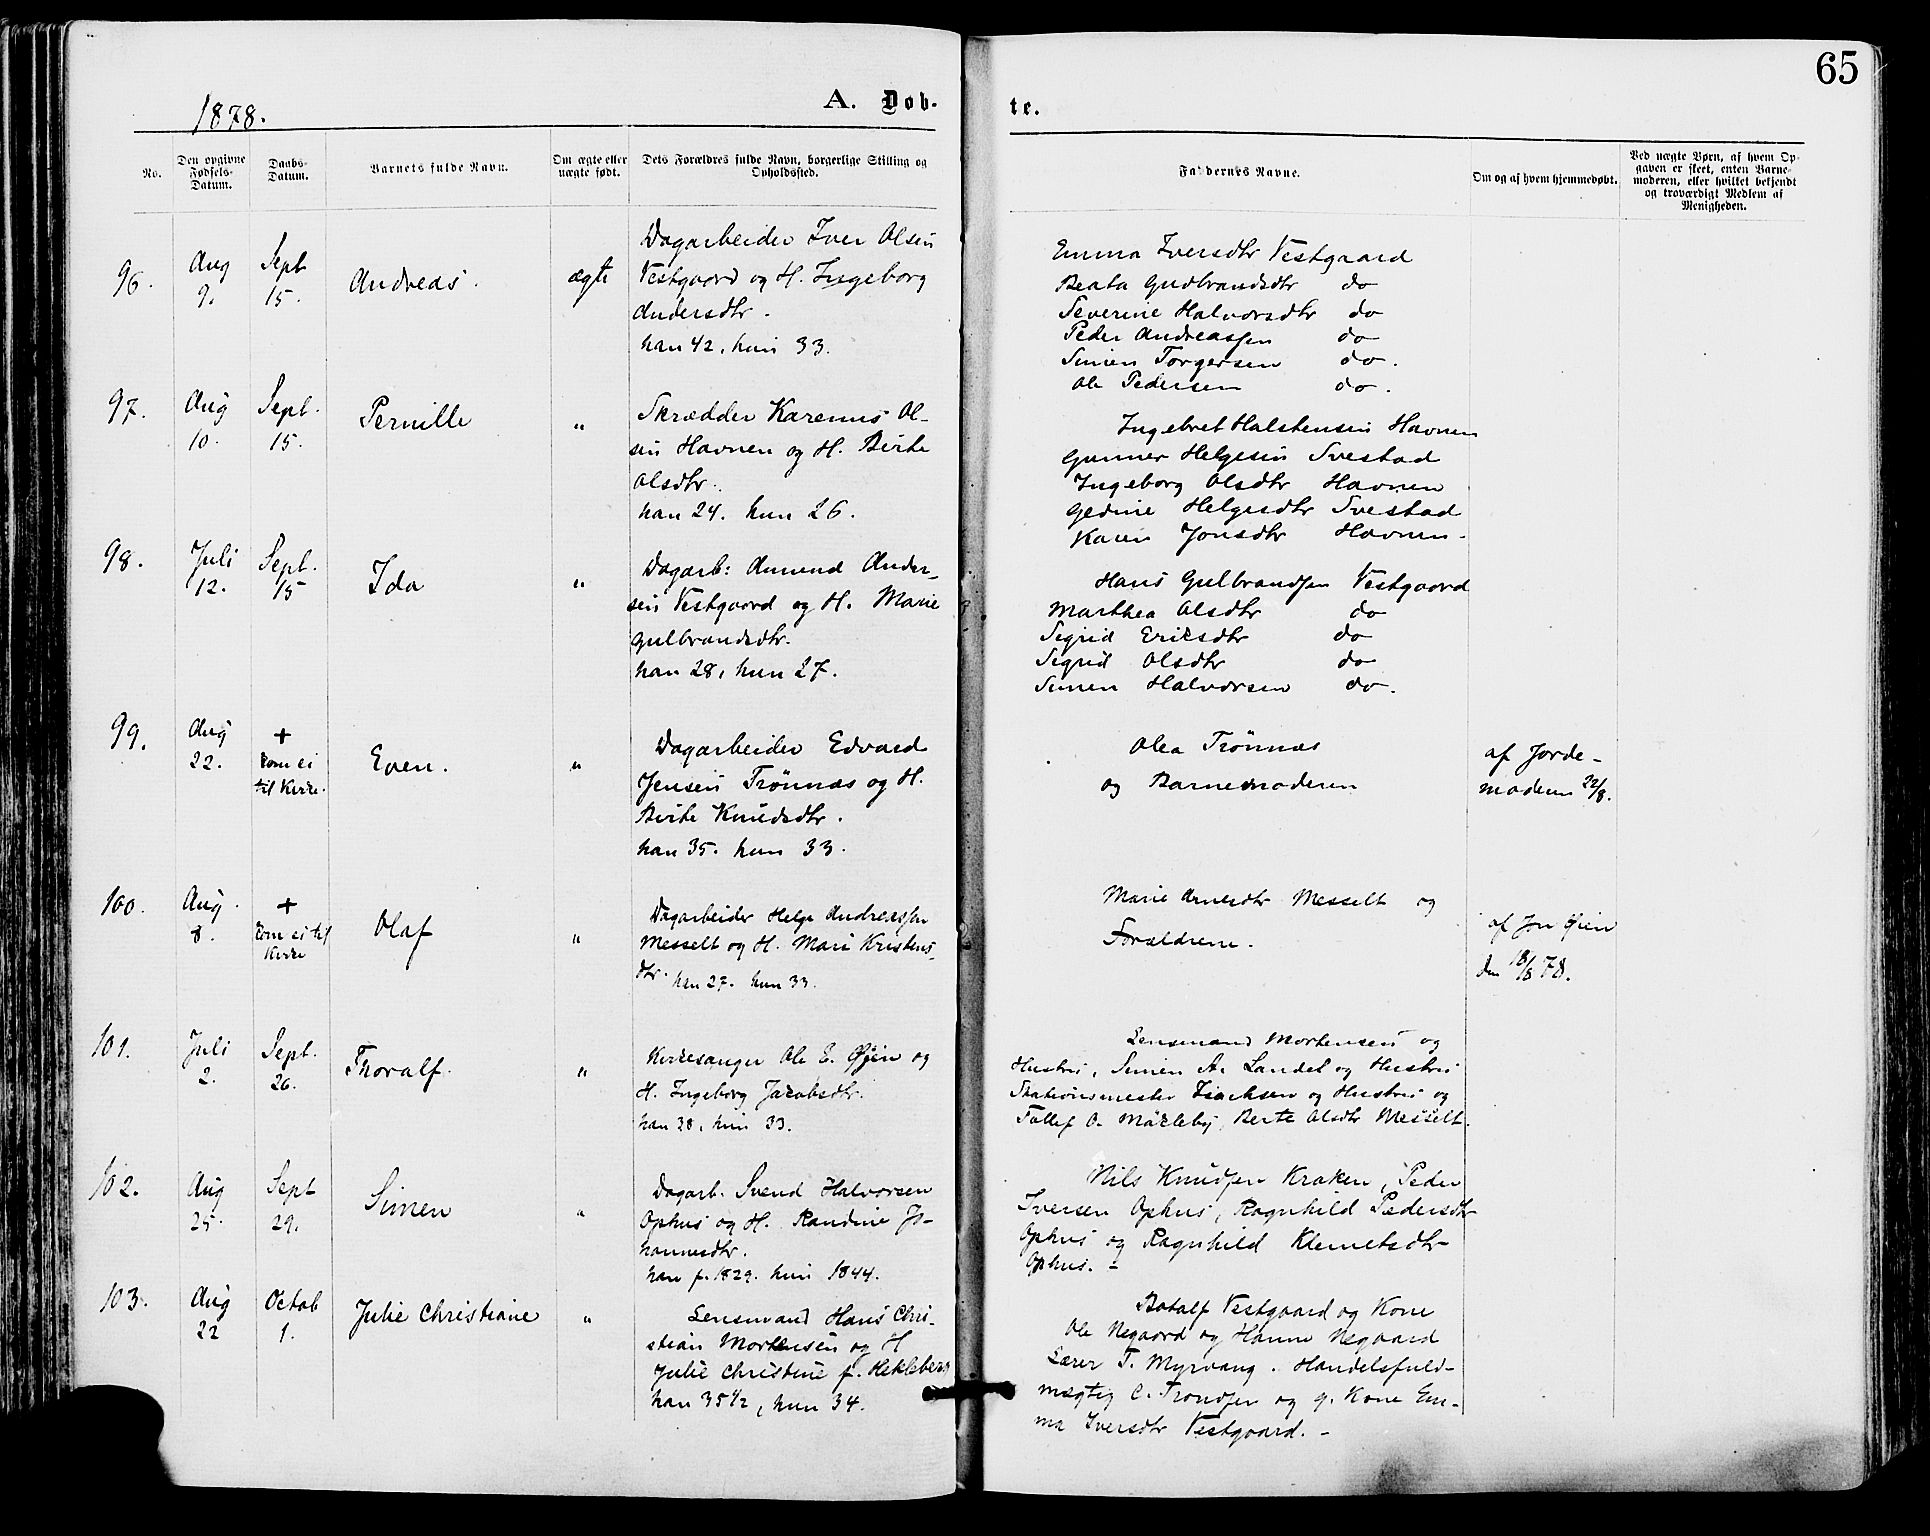 65
1878.
A. Døb-
te.
No.
Den opgivne Fødsels-Datum.
Daabs-Datum.
Barnets fulde Navn.
Om ægte eller uægte født.
Dets Forældres fulde Navn, borgerlige Stilling og Opholdssted.
Faddernes Navne.
Om og af hvem hjemmedøbt.
Ved uægte Børn, af hvem Op-
gaven er skeet, enten Barne-
moderen, eller hvilket bekjendt
og troværdigt Medlem af
Menigheden.
96.
Aug
9.
Sept
15.
Andreas.
ægte
Dagarbeider Iver Olsen
Vestgaard og H. Ingeborg
Andersdtr.
han 42, hun 33.
Emma Iversdtr Vestgaard
Beata Gudbrandsdtr do
Severine Halvorsdtr do
Peder Andreassen do
Simen Torgersen do.
Ole Pedersen do.
97.
Aug
10.
Sept.
15.
Pernille
"
Skrædder Karenus Ol-
sen Havnen og H. Birte
Olsdtr.
han 24. hun 26.
Ingebret Halstensen Havnen
Gunner Helgesen Svestad
Ingeborg Olsdtr Havnen
Gedine Helgesdtr Svestad
Karen Jonsdtr Havnen.
98.
Juli
12.
Sept.
15
Ida
"
Dagarb: Amund Ander-
sen Vestgaard og H. Marie
Gulbrandsdtr.
han 28, hun 27.
Hans Gulbrandsen Vestgaard
Marthea Olsdtr do
Sigrid Eriksdtr do
Sigrid Olsdtr do
Simen Halvorsen do.
99.
Aug
22.
+
kom ei
til Kirke.
Even.
"
Dagarbeider Edvard
Jensen Trönnæs og H.
Birte Knudsdtr.
han 35. hun 33.
Olea Trönnæs
og Barnemoderen
af Jorde-
moderen 22/8.
100.
Aug.
8.
+
kom ei til
Kirke
Olaf
"
Dagarbeider Helge Andreassen
Messelt og H. Mari Kristens-
dtr. han 27. hun 33.
Marie Arnesdtr Messelt og
Forældrene.
af Jon Øien
den 18/8 78.
101.
Juli
2.
Sept.
26.
Thoralf.
"
Kirkesanger Ole E. Øjen og
H. Ingeborg Jacobsdtr.
han 38, hun 33.
Lensmand Mortensen og
Hustru, Simen A. Landet og Hustru
Stationsmester Isachsen og Hustru og
Tollef O. Mökleby, Berte Olsdtr Messelt.
102.
Aug
25.
Sept
29.
Simen
"
Dagarb. Svend Halvorsen
Ophus og H. Randine Jo-
hannesdtr.
han f. 1829. hun 1844.
Nils Knudsen Kraken, Peder
Iversen Ophus, Ragnhild Pedersdtr
Ophus og Ragnhild Klemetsdtr
Ophus. -
103.
Aug
22
Octob
1.
Julie Christiane
"
Lensmand Hans Chri-
stian Mortensen og H
Julie Christine f. Hekleberg
han 35 1/2, hun 34.
Botolf Vestgaard og Kone
Ole Negaard og Hanne Negaard
Lærer T. Myrvang. Handelsfuld-
mægtig C. Trondsen og g. Kone Em-
ma Iversdtr Vestgaard. -